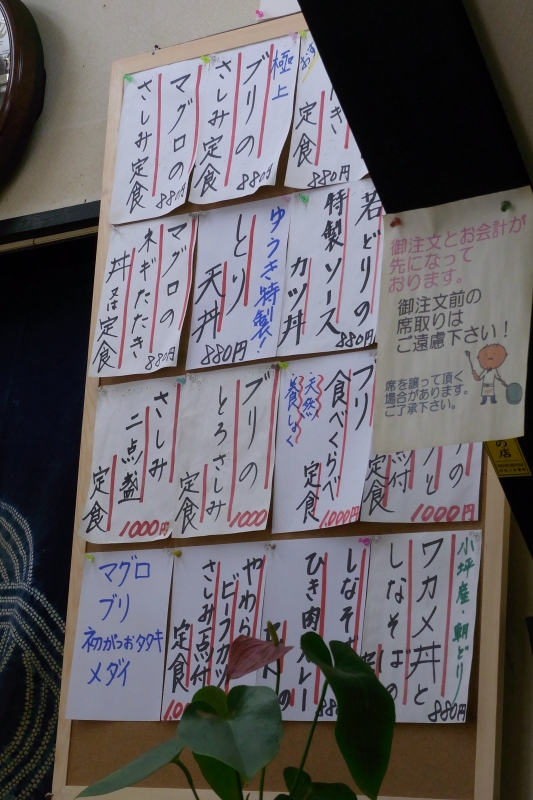 極上
ブリの
さしみ
定食
880円
マグロの
さしみ定食
880円
定食
880円
若どりの
特製ソース
カツ丼
880円
ゆうき特製!
とり
天丼
880円
マグロの
ネギたたき
丼又は定食
880円
ブリ
食べくらべ
定食
天然
養しょく
1,000円
ブリの
とろさしみ
定食
1000
さしみ
二点盛
定食
1000円
定食
1000円
小坪産・朝どり
ワカメ丼と
しなそばの
880円
しなそば
ひき肉カレー
の
やわら
ビーフカツ
さしみ一点付
定食
マグロ
ブリ
初がつおタタキ
メダイ
御注文とお会計が
先になって
おります。
御注文前の
席取りは
ご遠慮下さい!
席を譲って頂く
場合があります。
ご了承下さい。
の店